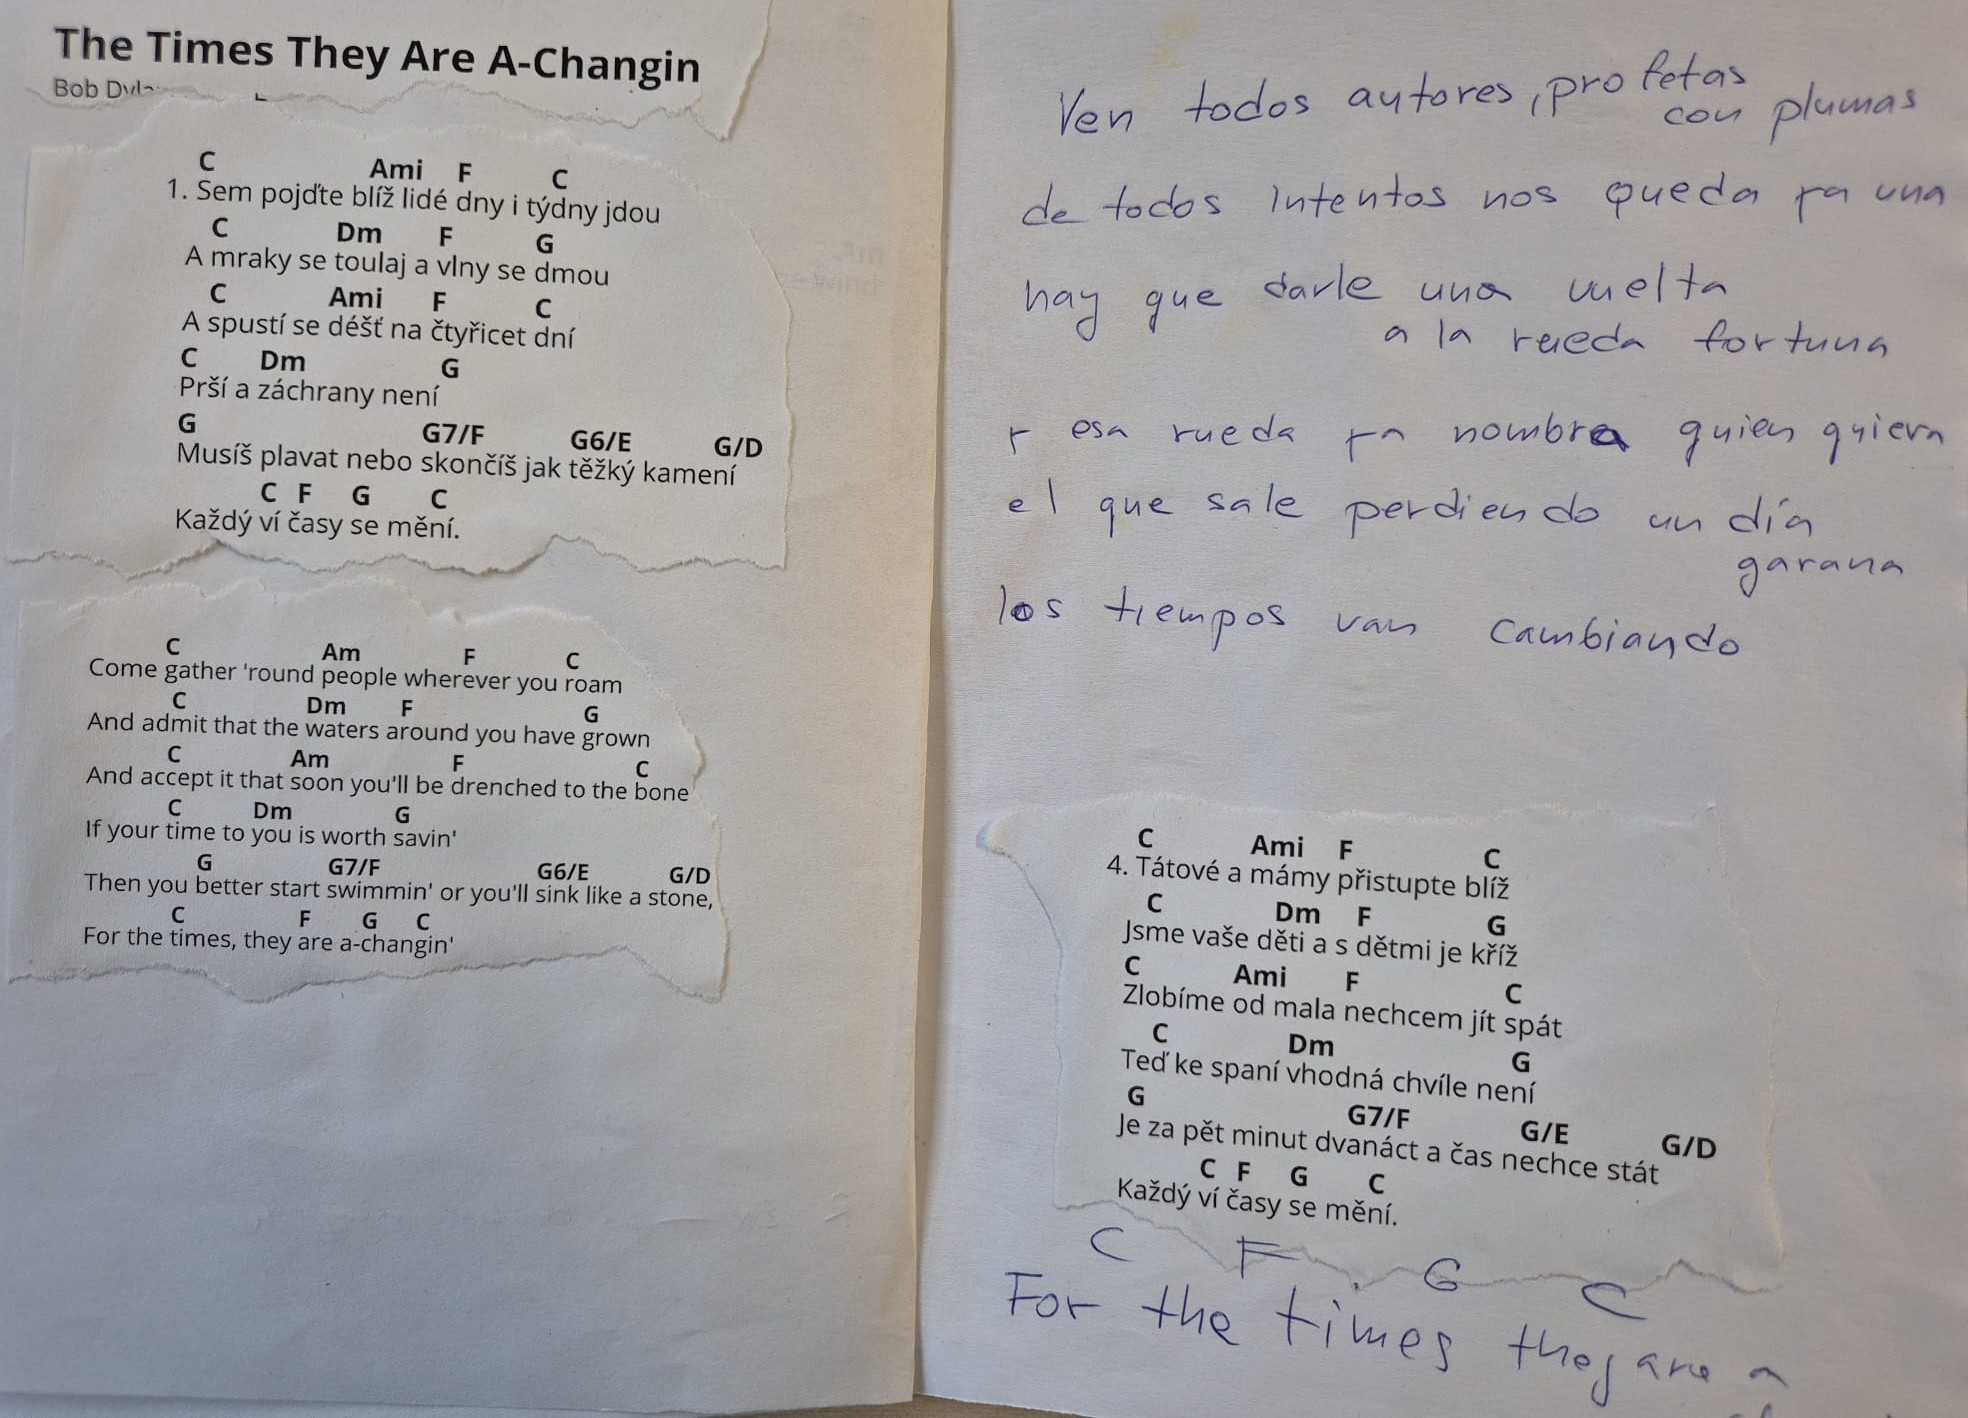 The Times They Are A-Changin
Bob
C Ami F C
1. Sem pojďte blíž lidé dny i týdny jdou
C Dm F G
A mraky se toulaj a vlny se dmou
C Ami F C
A spustí se déšť na čtyřicet dní
C Dm G
Prší a záchrany není
G G7/F G6/E G/D
Musíš plavat nebo skončíš jak těžký kamení
C F G C
Každý ví časy se mění.
C Am F C
Come gather 'round people wherever you roam
C Dm F G
And admit that the waters around you have grown
C Am F C
And accept it that soon you'll be drenched to the bone
C Dm G
If your time to you is worth savin'
G G7/F G6/E G/D
Then you better start swimmin' or you'll sink like a stone,
C F G C
For the times, they are a-changin'
Ven todos autores, profetas
con plumas
de todos intentos nos queda ya una
hay que darle una vuelta
a la rueda fortuna
y esa rueda ya nombra quien quiera
el que sale perdiendo un día
garana
los tiempos van cambiando
C Ami F C
4. Tátové a mámy přistupte blíž
C Dm F G
Jsme vaše děti a s dětmi je kříž
C Ami F C
Zlobíme od mala nechcem jít spát
C Dm G
Teď ke spaní vhodná chvíle není
G G7/F G/E G/D
Je za pět minut dvanáct a čas nechce stát
C F G C
Každý ví časy se mění.
C F G C
For the times they are a